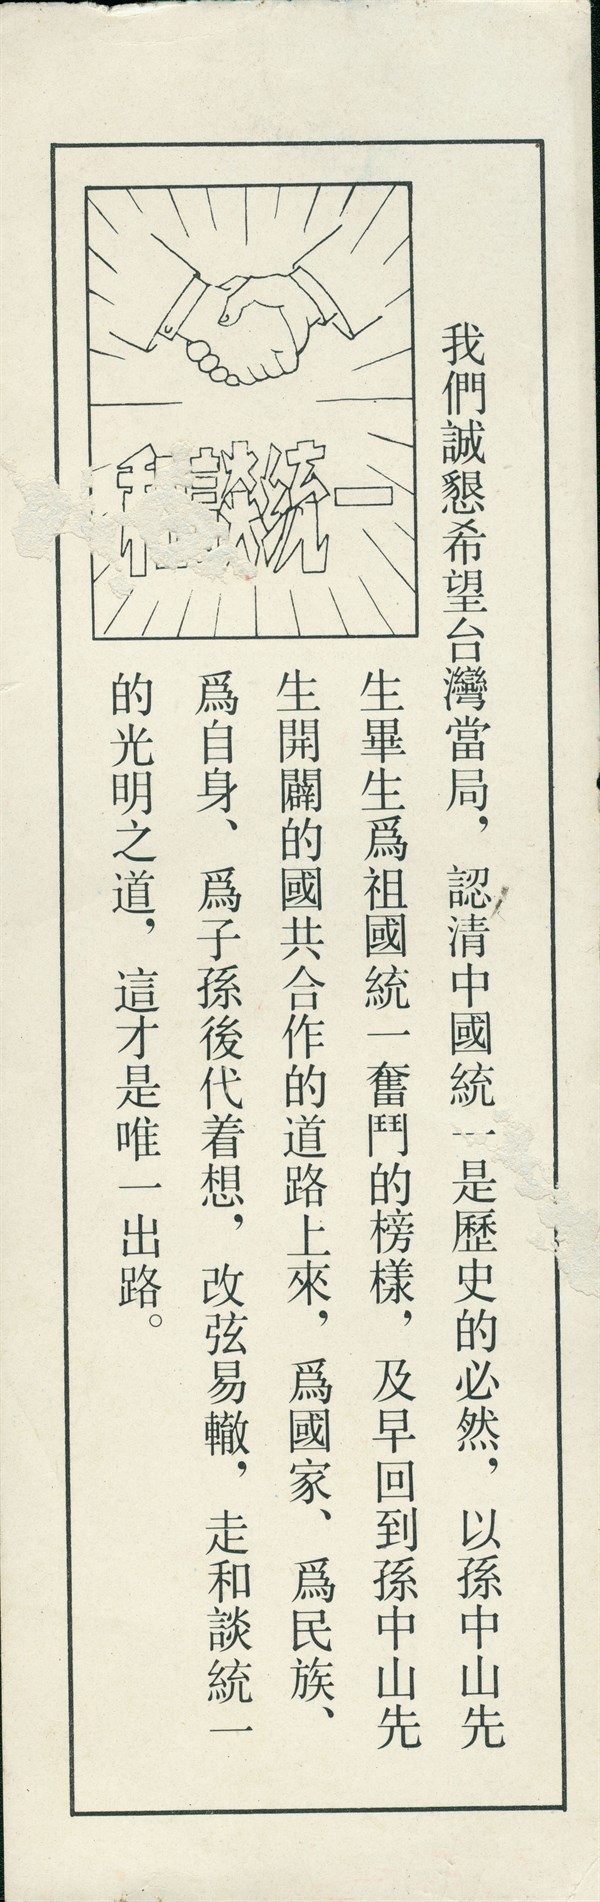 我們誠懇希望台灣當局，認清中國統一是歷史的必然，以孫中山先
生畢生爲祖國統一奮鬥的榜樣，及早回到孫中山先
生開闢的國共合作的道路上來，爲國家、爲民族、
爲自身、爲子孫後代着想，改弦易轍，走和談統一
的光明之道，這才是唯一出路。
和談統一